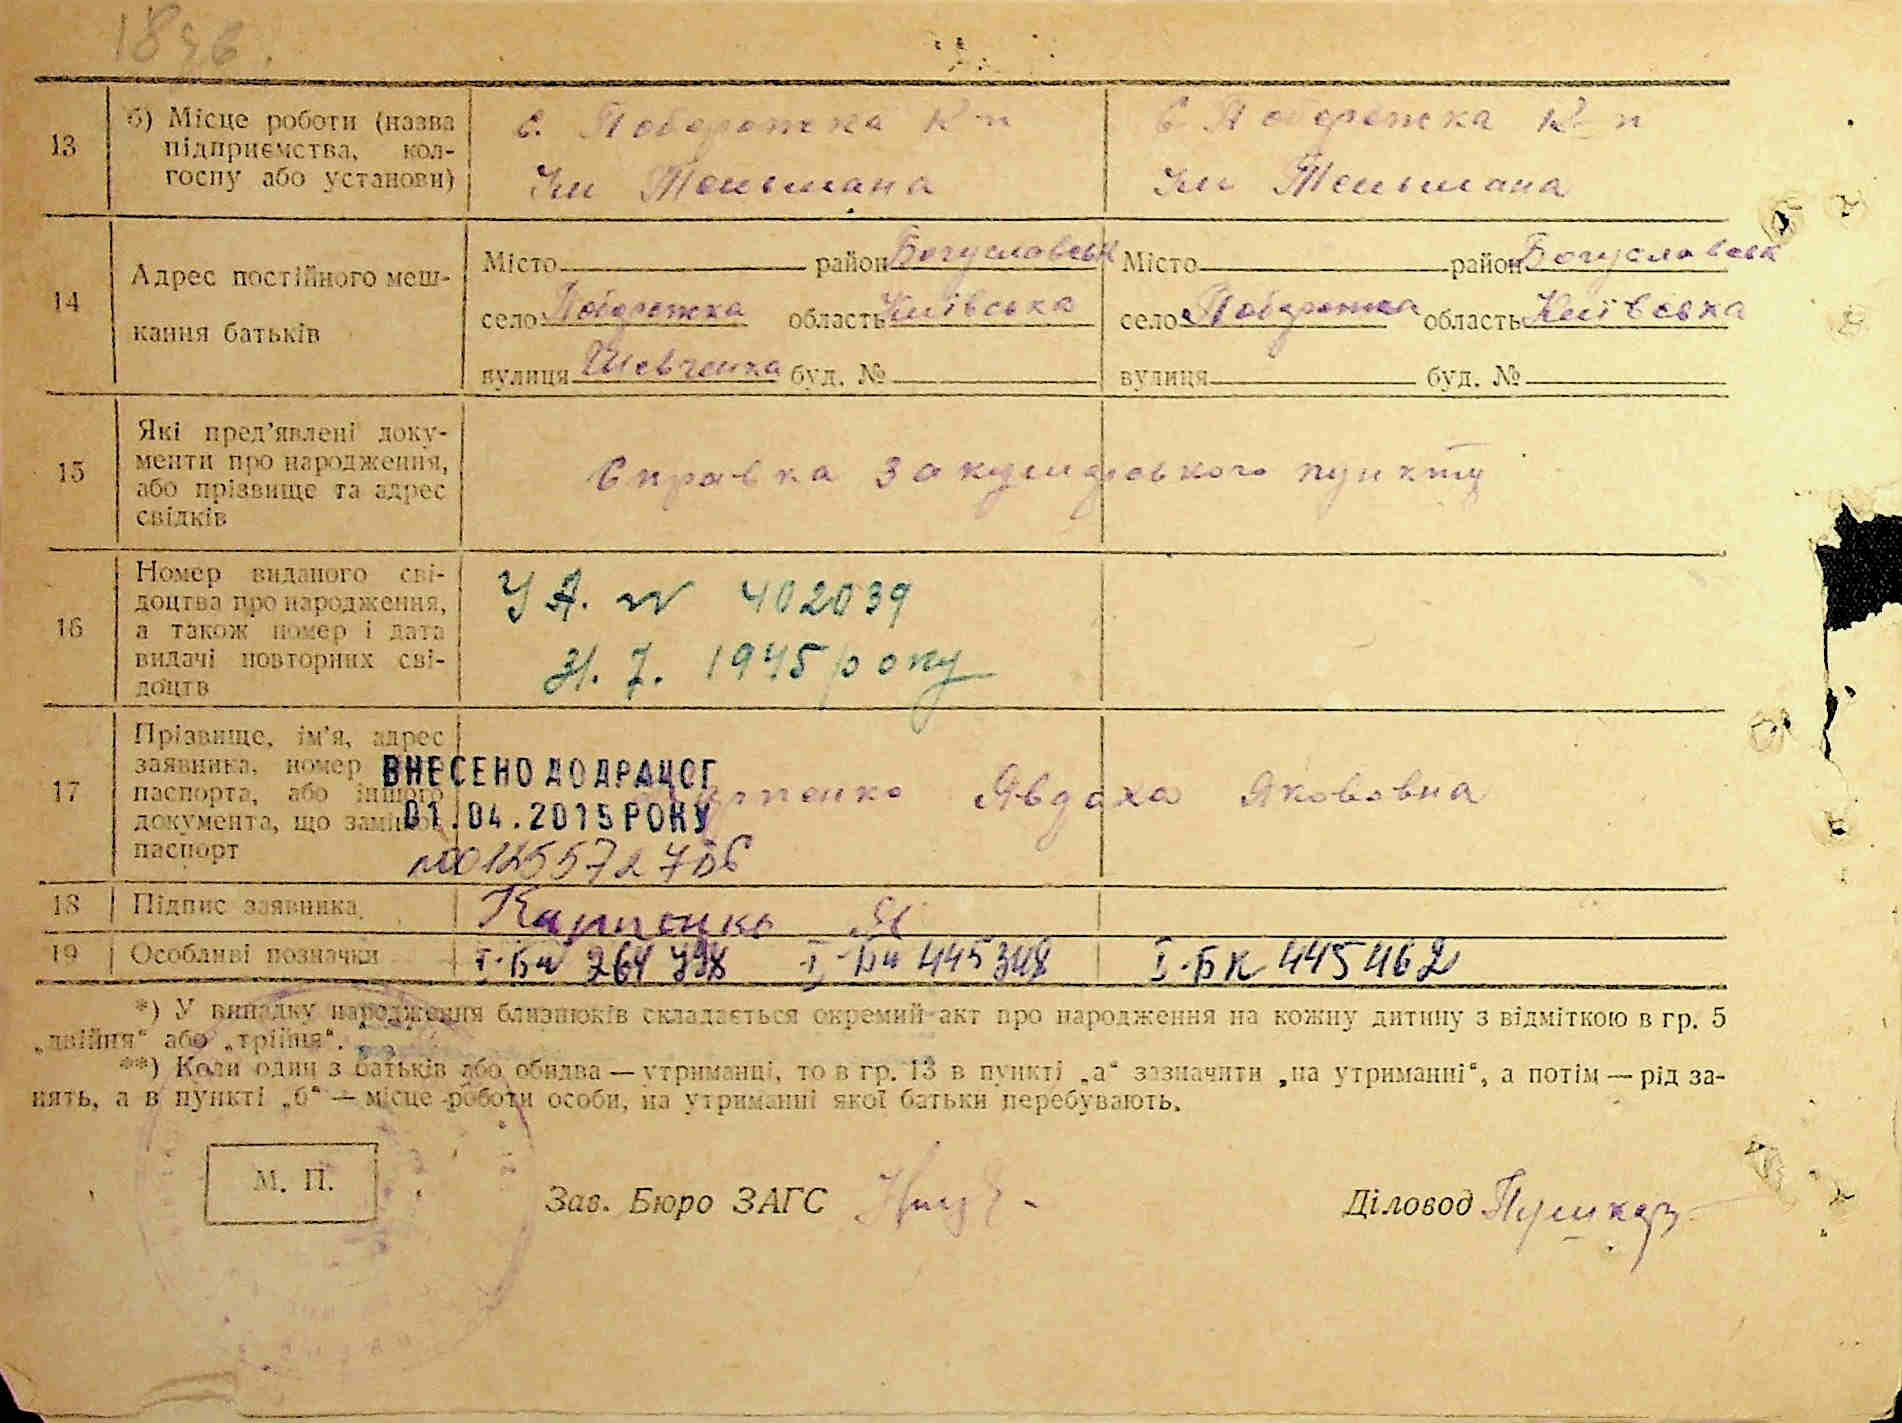 1896.
13 б) Місце роботи (назва підприємства, колгоспу або установи)
с. Побережка К-п
Ім Тельмана
С Побережка К-п
Ім Тельмана
14 Адрес постійного мешкання батьків
Місто район Богуславськ
село Побережка область Київська
вулиця Шевченка буд. №
Місто район Богуславськ
село Побережка область Київська
вулиця буд. №
15 Які пред’явлені документи про народження, або прізвище та адрес свідків
Справка закушерського пункту
16 Номер виданого свідоцтва про народження, а також номер і дата видачі повторних свідоцтв
УА. № 402039
31. 7. 1945 року
17 Прізвище, ім’я, адрес заявника, номер паспорта, або іншого документа, що заміняє паспорт
Карпенко Явдаха Якововна
ВНЕСЕНО ДО ДРАЦОГ
01.04.2015 РОКУ
18 Підпис заявника
Карпенко Я
19 Особливі позначки
І-БК 445462
*) У випадку народження близнюків складається окремий акт про народження на кожну дитину з відміткою в гр. 5
„двійня“ або „трійня“.
**) Коли один з батьків або обидва — утриманці, то в гр. 13 в пункті „а“ зазначити „на утриманні“, а потім — рід за-
нять, а в пункті „б“ — місце роботи особи, на утриманні якої батьки перебувають.
М. П.
Зав. Бюро ЗАГС
Діловод Пушкар